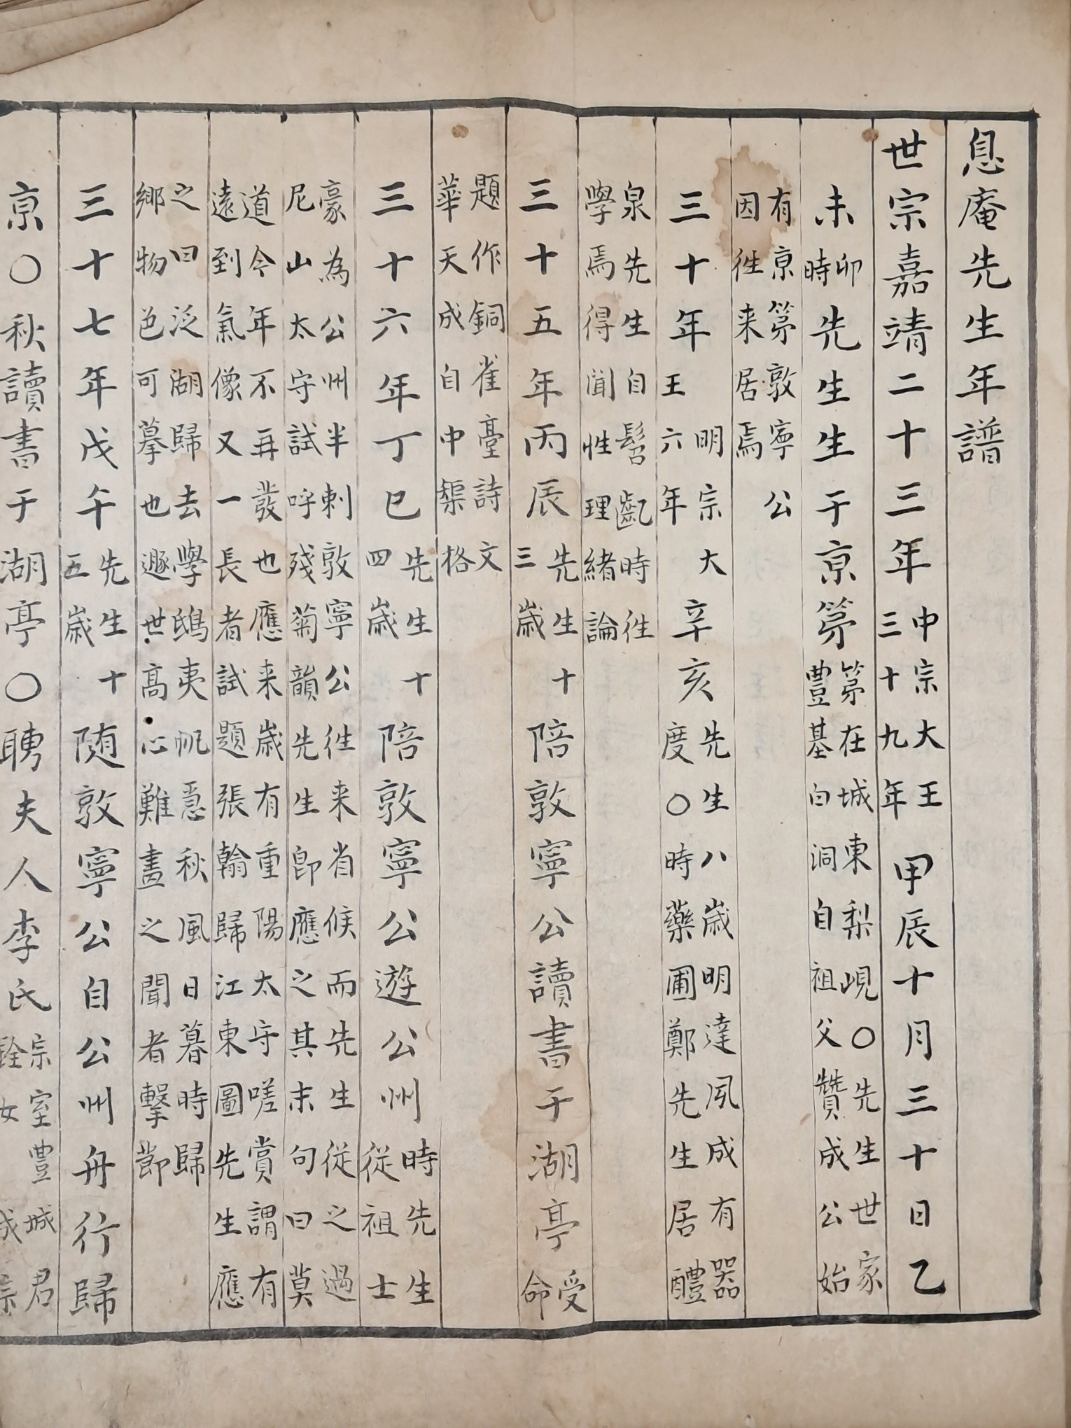 息庵先生年譜
世宗嘉靖二十三年中宗大王三十九年甲辰十月三十日乙
未卯時先生生于京第第在城東梨峴○先生世家豊基白洞自祖父贊成公始
有京第敦寧公因徃来居焉
三十年明宗大王六年辛亥先生八歳明達夙成有器度○時藥圃鄭先生居醴
泉先生自髫齔時徃學焉得聞性理緒論
三十五年丙辰先生十三歳陪敦寧公讀書于湖亭受命
題作銅雀臺詩文華天成自中榘格
三十六年丁巳先生十四歳陪敦寧公遊公州時先生從祖士
豪為公州半刺敦寧公徃来省候而先生從之過尼山太守試呼殘菊韻先生即應之其末句曰莫
道今年不再發也應来歳有重陽太守嗟賞謂有遠到氣像又一長者試題張翰歸江東圖先生應
之曰泛湖歸去學鴟夷帆急秋風日暮時歸鄉物色可摹也遯世高心難畫之聞者擊節
三十七年戊午先生十五歳随敦寧公自公州舟行歸
京○秋讀書于湖亭○聘夫人李氏宗室豊城君銓女成宗